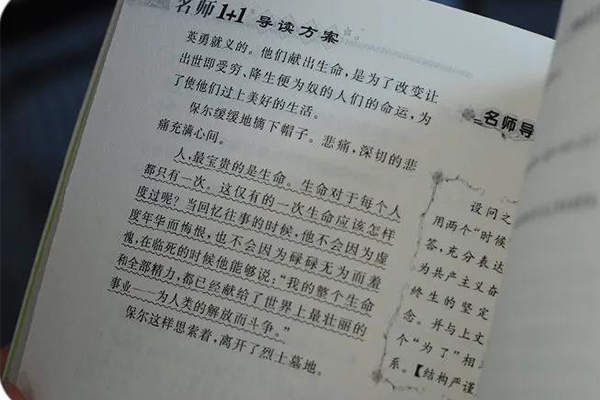 名师1+1导读方案
英勇就义的。他们献出生命，是为了改变让
出世即受穷、降生便为奴的人们的命运，为
了使他们过上美好的生活。
保尔缓缓地摘下帽子。悲痛，深切的悲
痛充满心间。
人，最宝贵的是生命。生命对于每个人
都只有一次。这仅有的一次生命应该怎样
度过呢？当回忆往事的时候，他不会因为虚
度年华而悔恨，也不会因为碌碌无为而羞
愧，在临死的时候他能够说：“我的整个生命
和全部精力，都已经献给了世界上最壮丽的
事业——为人类的解放而斗争。”
保尔这样思索着，离开了烈士墓地。
名师导
设问之
用两个“时候
答，充分表达
为共产主义奋
终生的坚定
念。并与上文
个“为了”相
系。【结构严谨